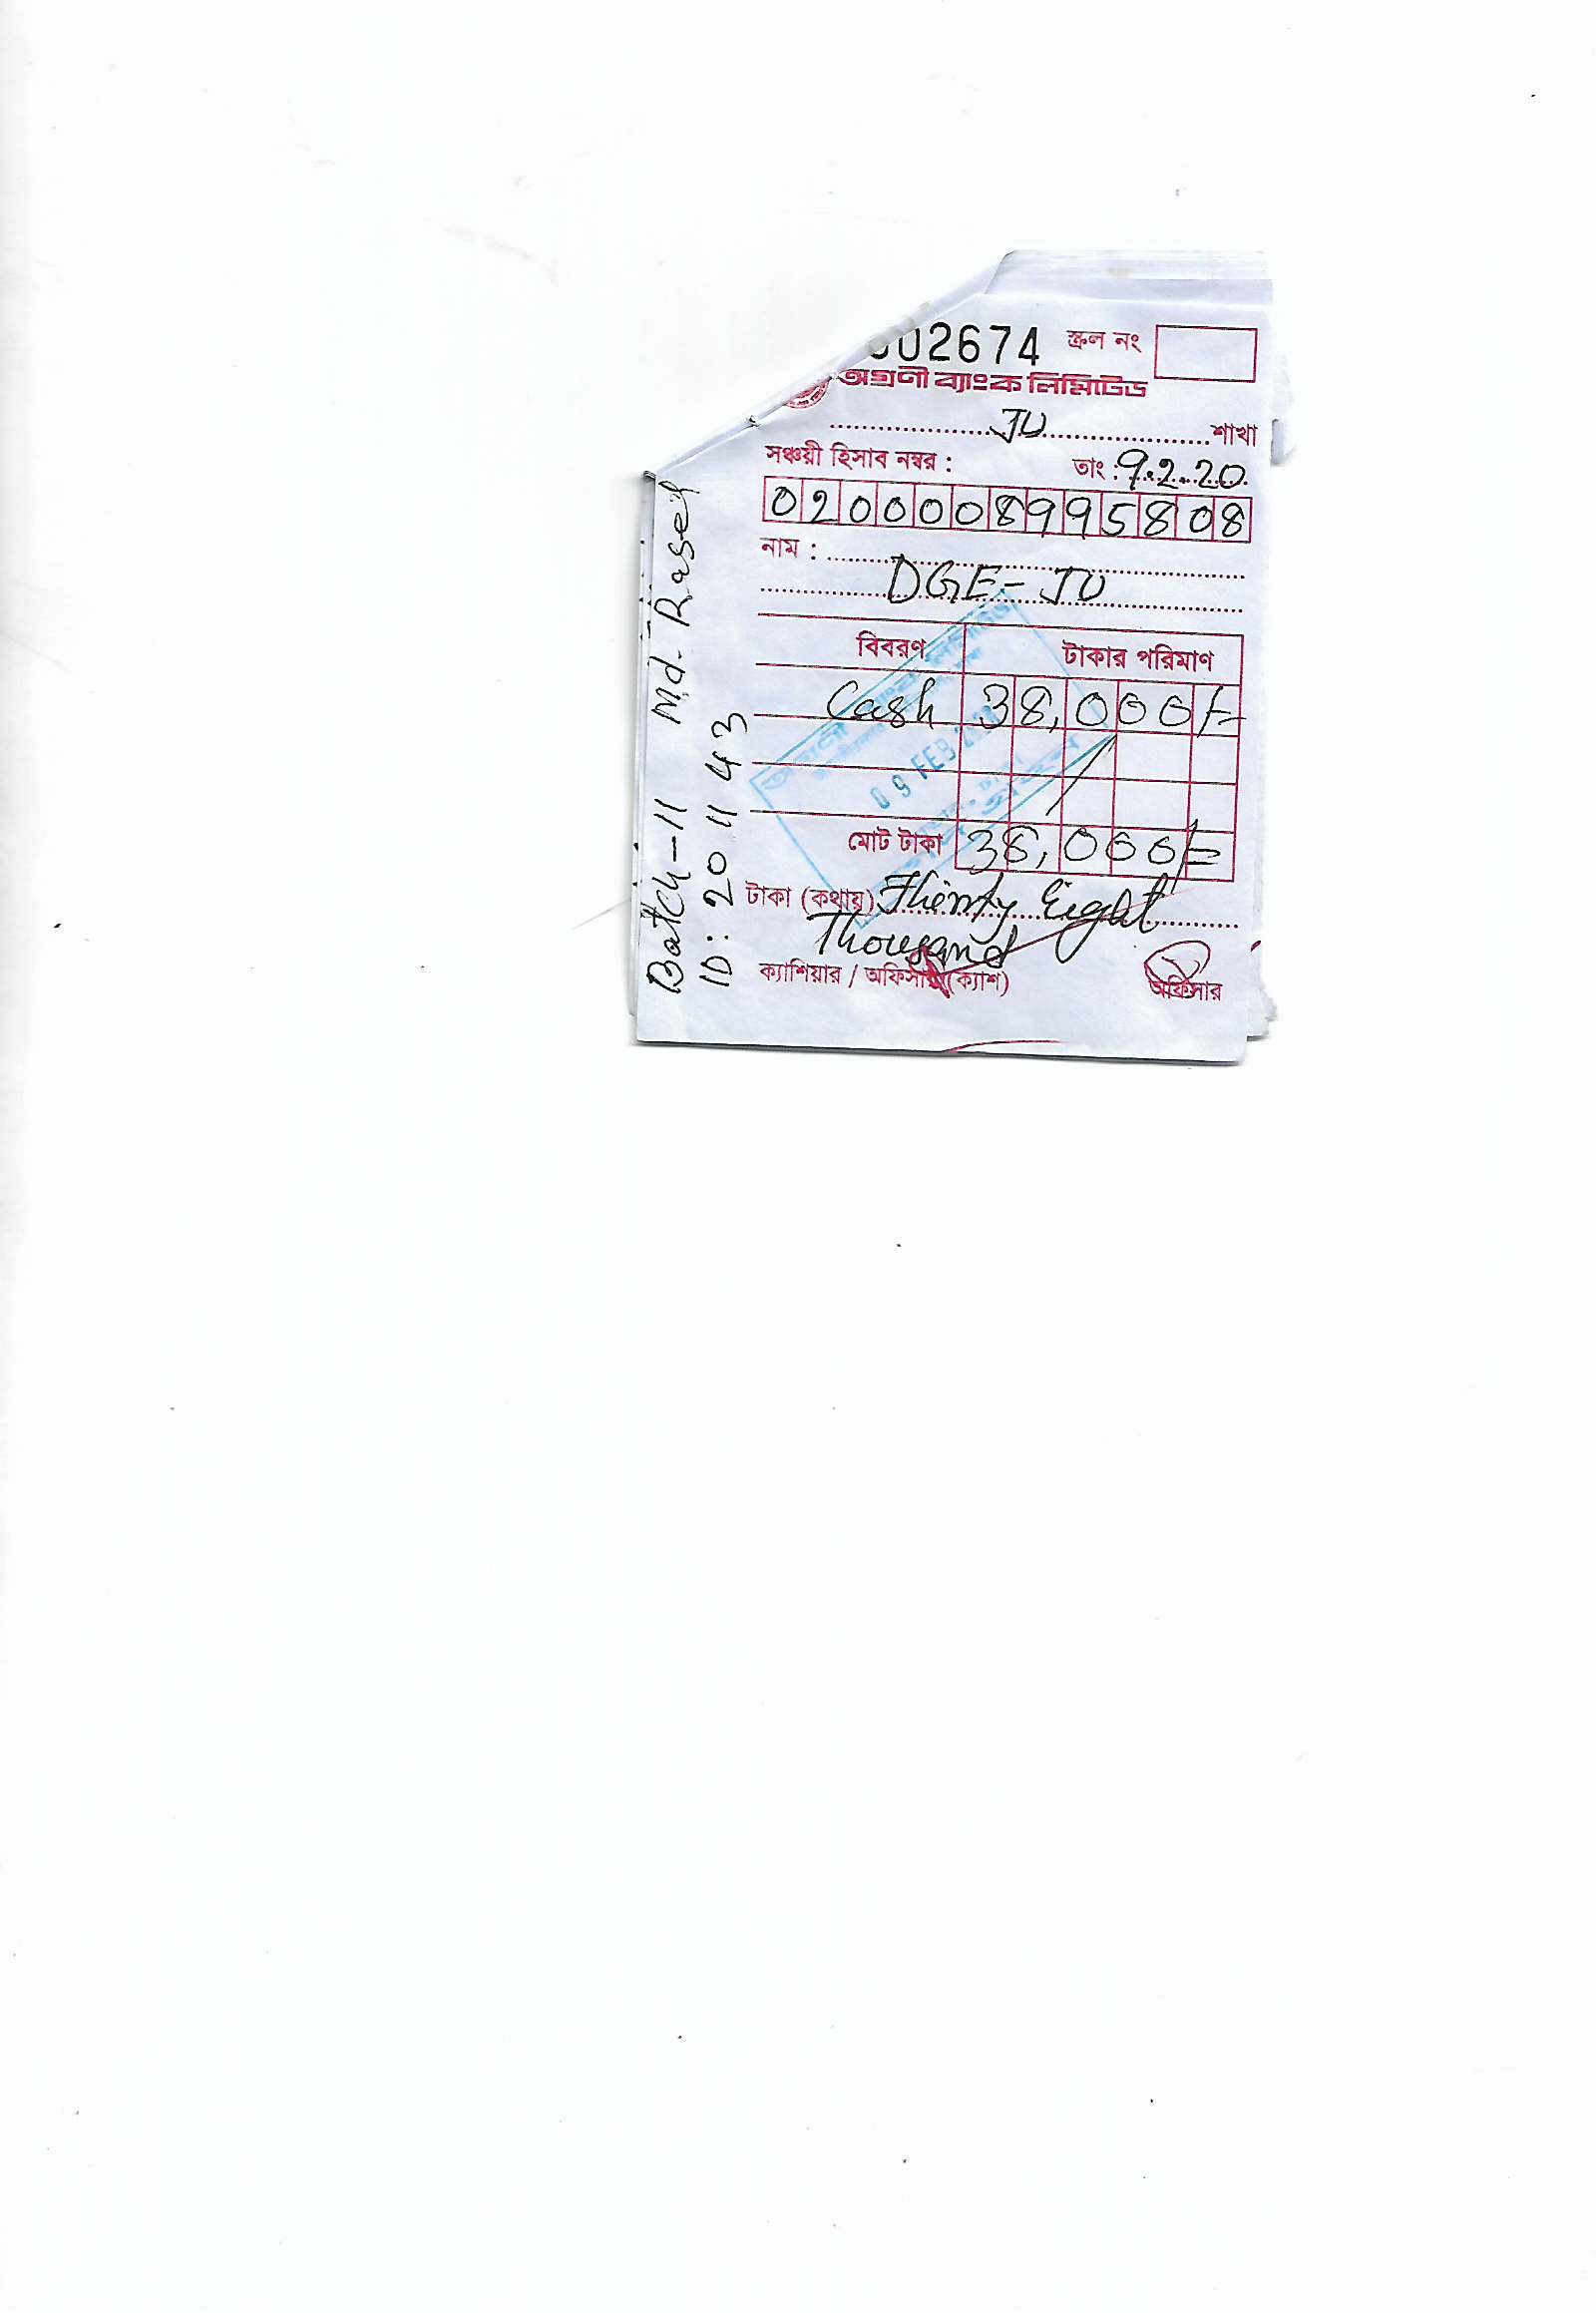 02674 স্ক্রল নং
অগ্রণী ব্যাংক লিমিটেড
JU শাখা
সঞ্চয়ী হিসাব নম্বর : তাং : 9.2.20
0200008995808
নাম :
DGE - JU
বিবরণ টাকার পরিমাণ
Cash 38,000/=
09 FEB
মোট টাকা 38,000/=
টাকা (কথায়) Thirty Eight
Thousand
ক্যাশিয়ার / অফিসার (ক্যাশ) অফিসার
Batch-11 Md. Rasel
ID: 201143